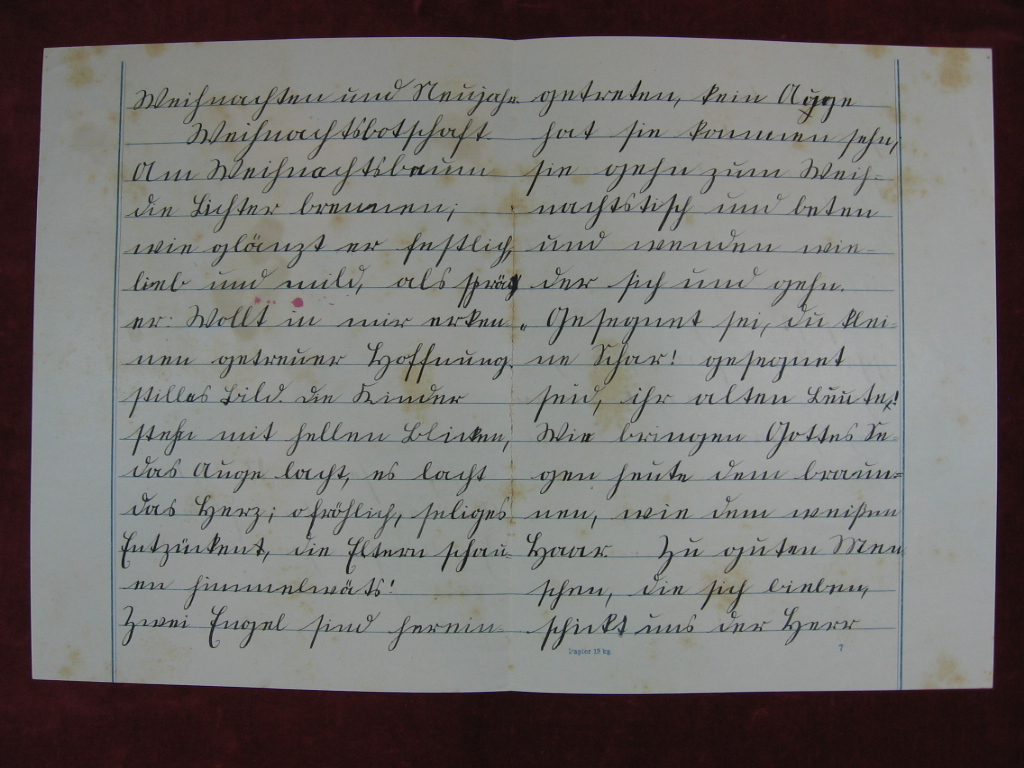 Weihnachten und Neujahr.
Weihnachtsbotschaft
Am Weihnachtsbaum
die Lichter brennen;
wie glänzt er festlich,
lieb und mild, als spräch
er: Wollt in mir erken-
nen getreuer Hoffnung
stilles Bild. Die Kinder
stehn mit hellen Blicken,
das Auge lacht, es lacht
das Herz; o fröhlich, seliges
Entzücken!, die Eltern schau-
en himmelwäts!
Zwei Engel sind herein-
getreten, kein Auge
hat sie kommen sehn,
sie gehn zum Weih-
nachtstisch und beten
und wenden wie-
der sich und gehn.
„ Gesegnet sei, du klei-
ne Schar! gesegnet
seid, ihr alten Leute!
Wir bringen Gottes Se-
gen heute dem braun-
nen, wie dem weißen
Haar. Zu guten Men-
schen, die sich lieben,
schickt uns der Herr
Papier 13 kg.
7